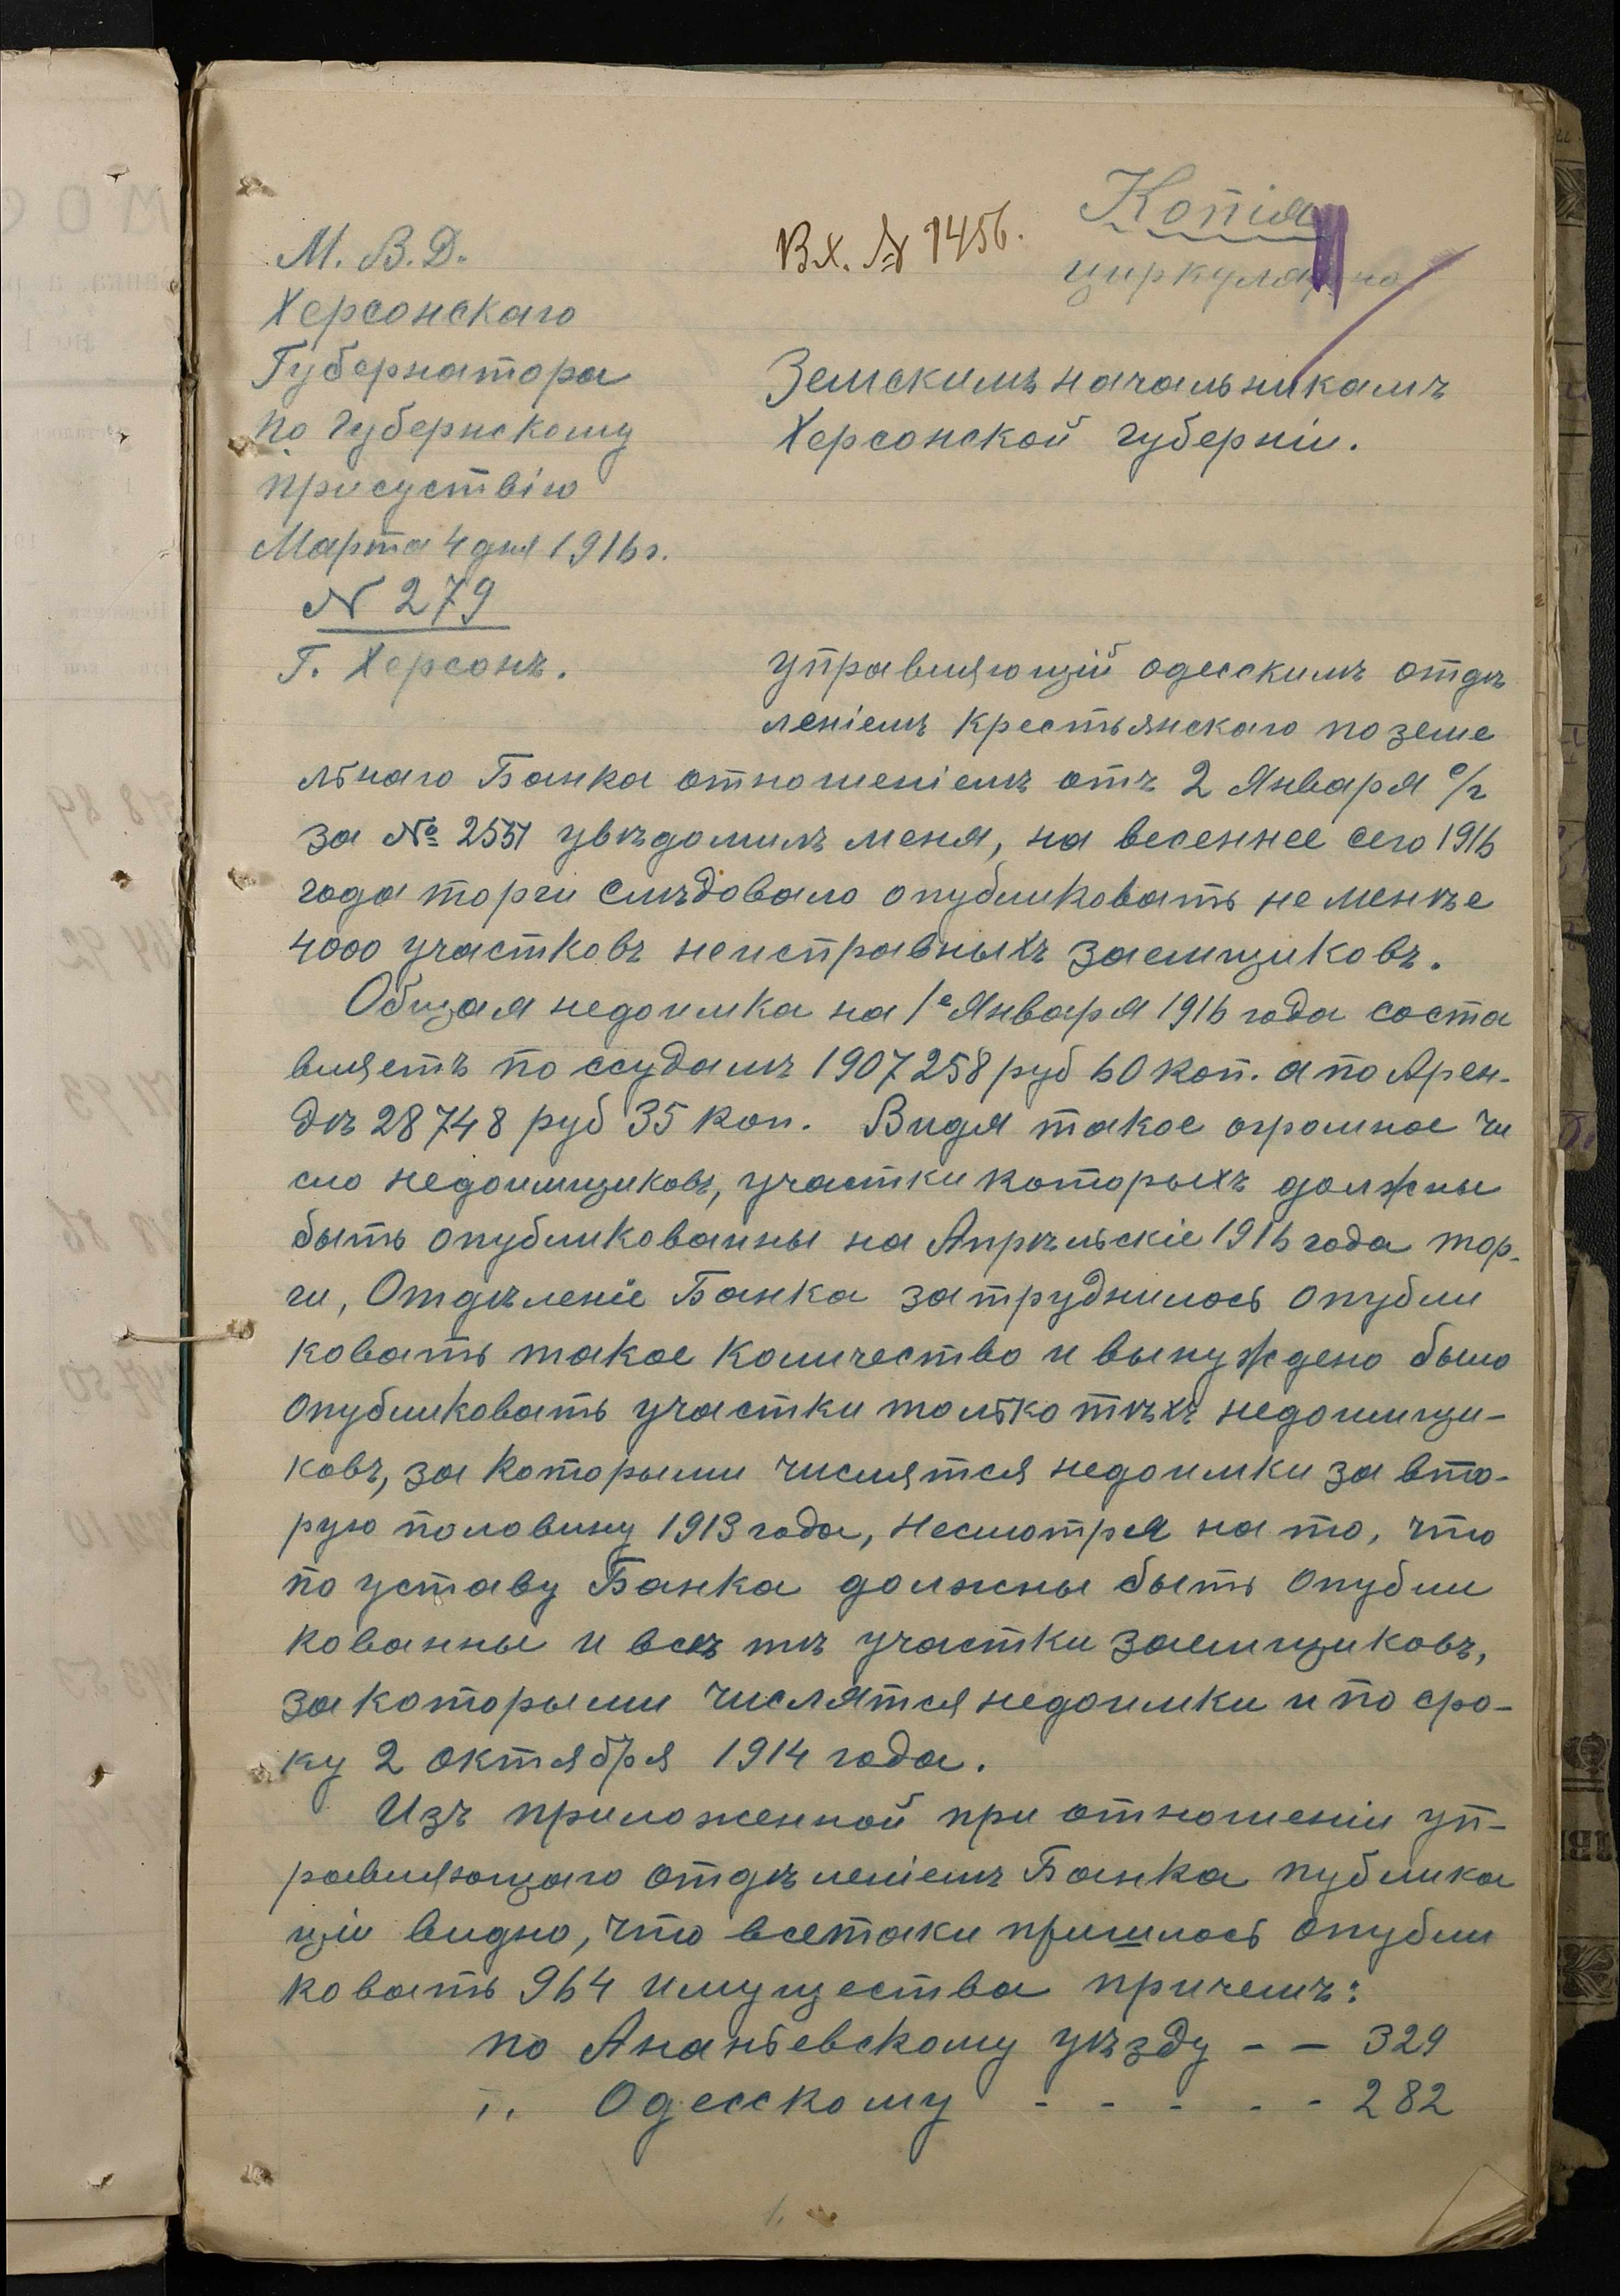 Копія
циркулярно
Вх. № 1456.
М. В. Д.
Херсонскаго
Губернатора
по Губернскому
присуствію
Марта 4 дня 1916 г.
N 279
Г. Херсонъ.
Земскимъ начальникамъ
Херсонской губерніи.
Управляющій одесскимъ отдѣ
леніемъ крестьянскаго поземе
льнаго Банка отношеніемъ отъ 2 Января с/г
за № 2551 увѣдомилъ меня, на весеннее сего 1916
года торги слѣдовало опубликовать не менѣе
4000 участковъ неисправныхъ заемщиковъ.
Общая недоимка на 1е Января 1916 года соста
вляетъ по ссудамъ 1907258 руб 60 коп. а по Арен-
дѣ 28748 руб 35 коп. Видя такое огромное чи
сло недоимщиковъ, участки которыхъ должны
быть опубликованны на Апрѣльскіе 1916 года тор-
ги, Отдѣленіе Банка затруднилось опубли
ковать такое количество и вынуждено было
опубликовать участки только тѣхъ недоимщи-
ковъ, за которыми числятся недоимки за вто-
рую половину 1913 года, несмотря на то, что
по уставу Банка должны быть опубли
кованны и всѣ тѣ участки заемщиковъ,
за которыми числятся недоимки и по сро-
ку 2 октября 1914 года.
Изъ приложенной при отношеніи уп-
равляющаго отдѣленіемъ Банка публика
ціи видно, что всетаки пришлось опубли
ковать 964 имущества причемъ:
по Ананьевскому уѣзду - - 329
" Одесскому - - - - - 282
1.